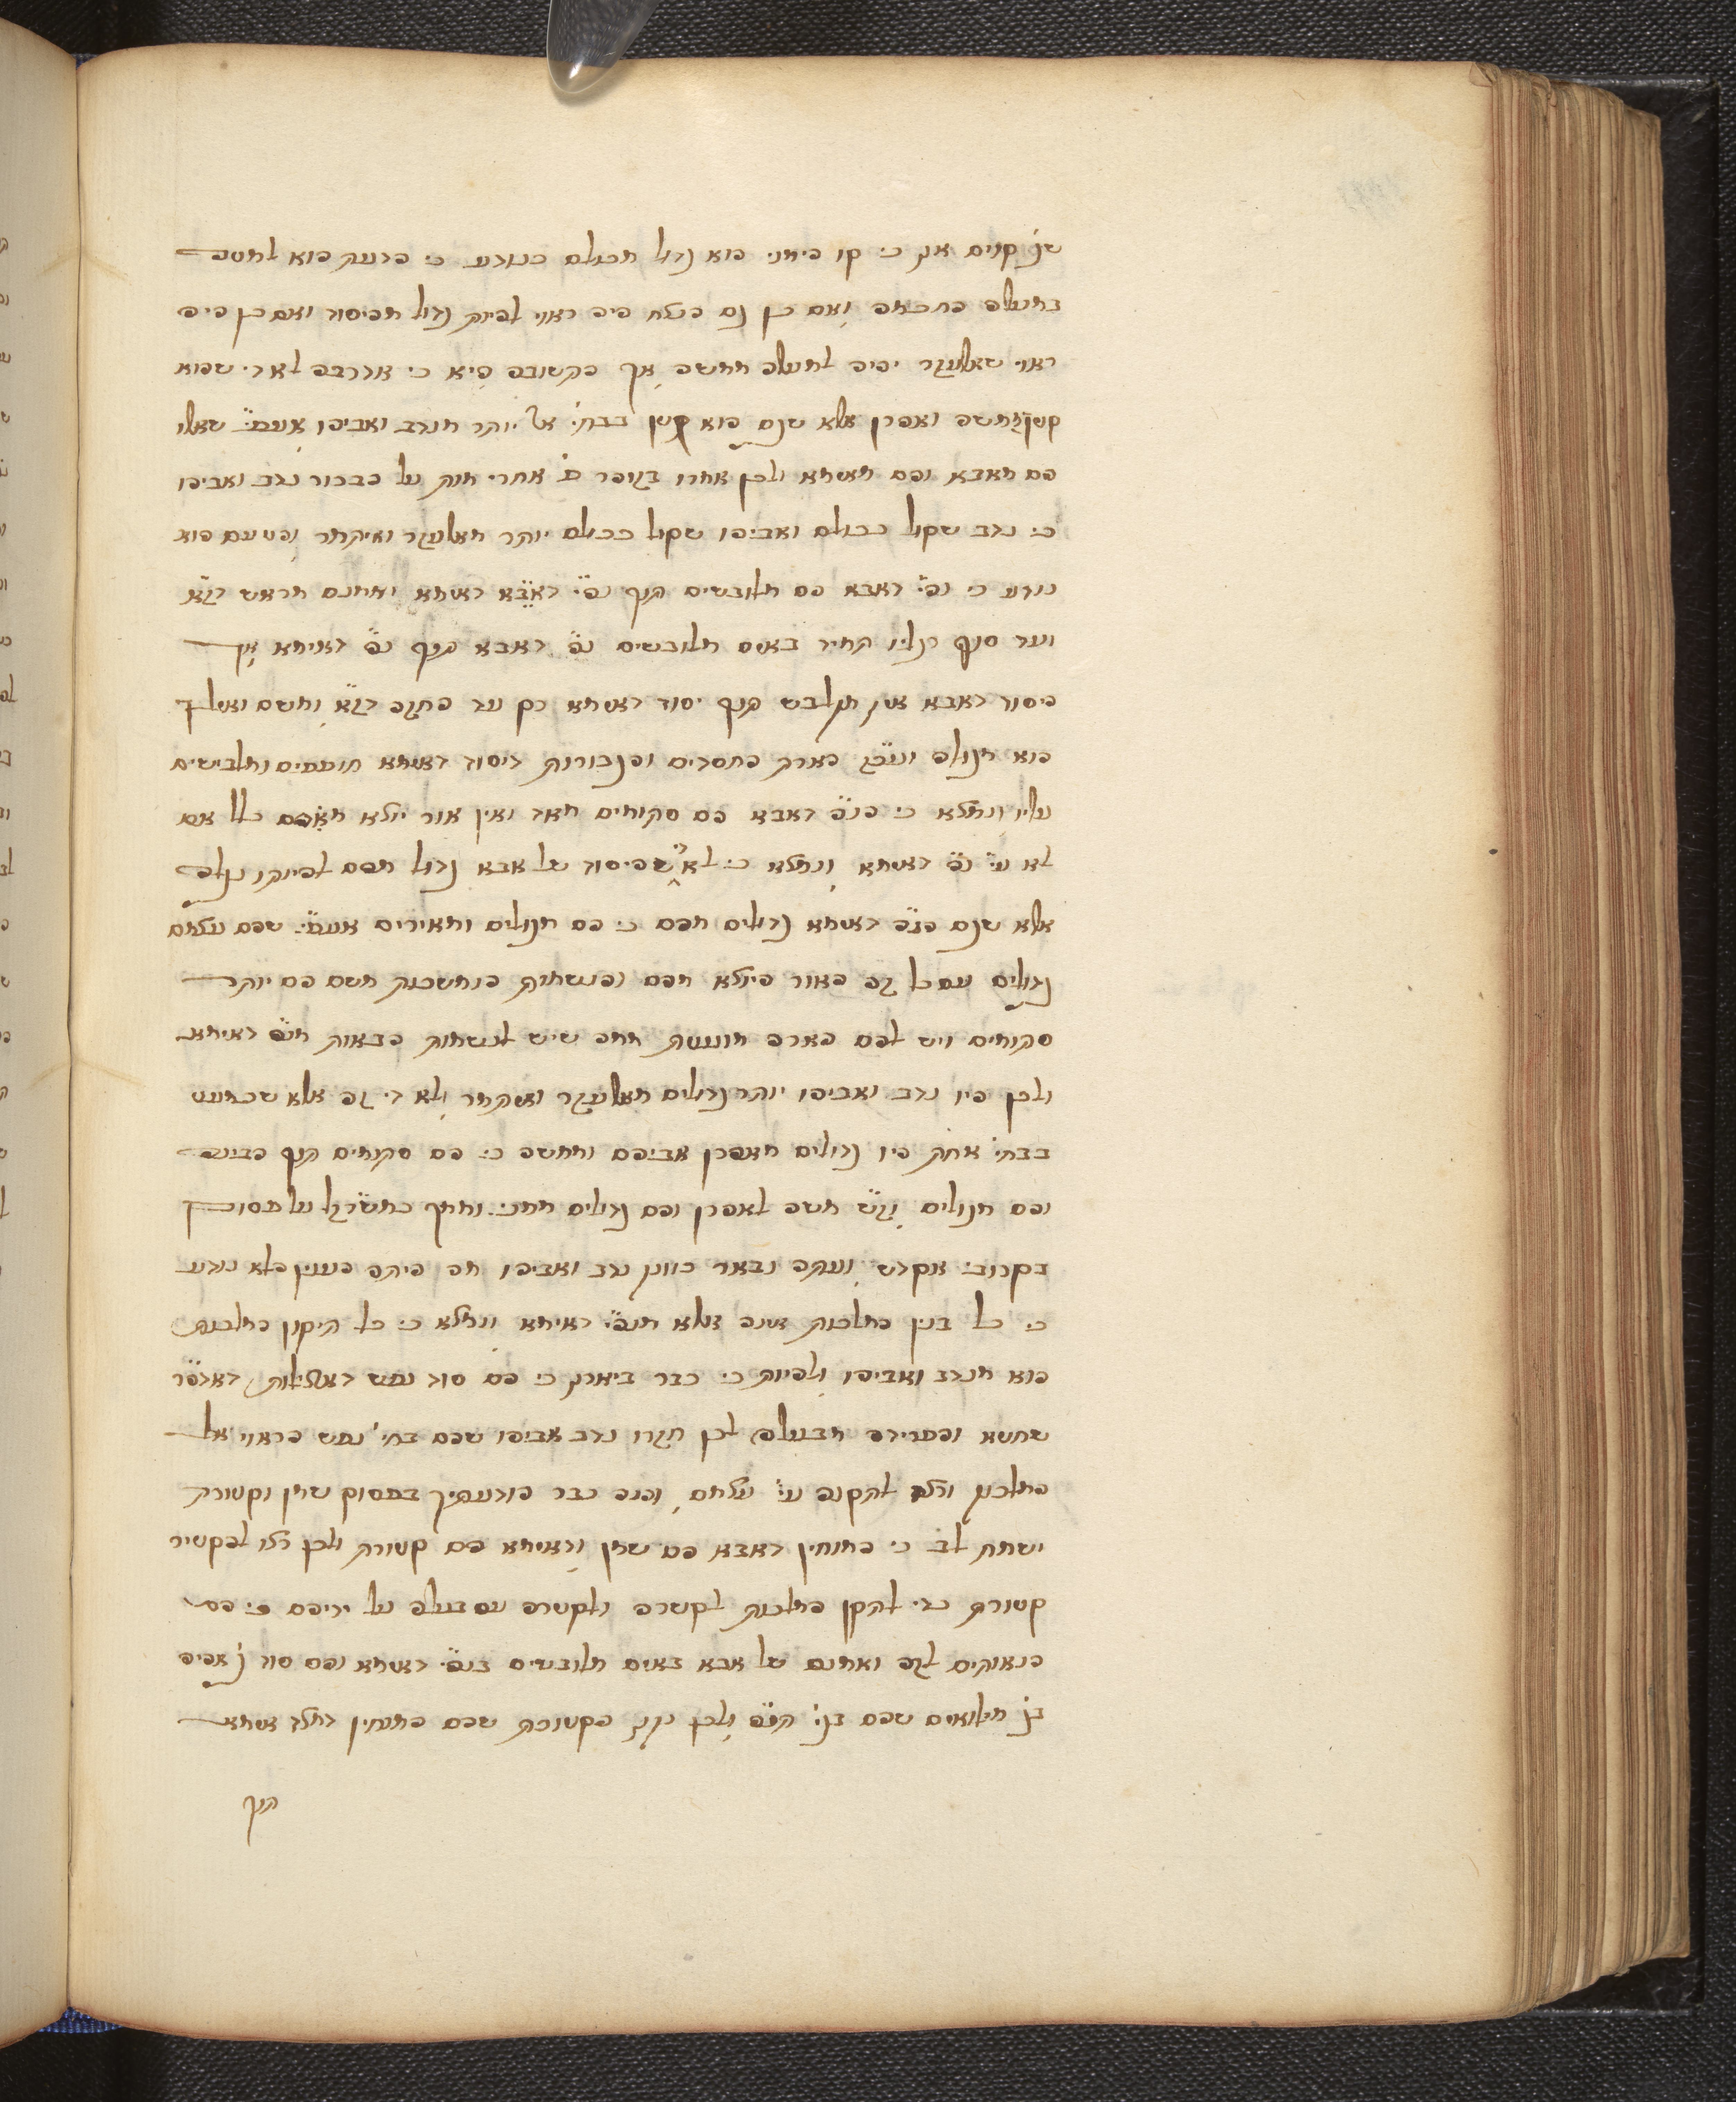 שני קוים אך כי קו הימני הוא גדול מכולם כנודע כי הדעת הוא למטה
במעלה החכמה ואם כן גם הנצח היה ראוי להיות גדול מהיסוד ואם כן היה
ראוי שאלעזר יהיה למעלה ממשה אך התשובה היא כי אדרבה לא די שהוא
קטן ממשה ואהרן אלא שגם הוא קטן בבחי' א' יותר מנדב ואביהו אעפ"י שאלו
הם מאבא והם מאימא ולכן אמרו בזוהר פ' אחרי מות על הבכור נדב ואביהו
כי נדב שקול ככולם ואביהו שקול ככולם יותר מאלעזר ואיתמר והטעם הוא
נודע כי נה"י דאבא הם מלובשים תוך נה"י דאימא ואמנם מראש דז"א
ועד סוף רגליו תמיד באים מלובשים נה"י דאבא תוך נה"י דאימא אך
היסוד דאבא אינו מתלבש תוך יסוד דאימא רק עד החזה דז"א ומשם ואילך
הוא מגולה ועכ"ז הארת החסדים והגבורות דיסוד דאימא מועטים ומלבישים
עליו ונמצא כי הנ"ה דאבא הם סתומים מאד ואין אור יוצא מהם כלל אם
לא ע"י נ"ה דאימא ונמצא כי לא די שהיסוד של אבא גדול מהם להיותו נגלה
אלא שגם הנ"ה דאימא גדולים מהם כי הם מגולים ומאירים אעפ"י שהם עצמם
גדולים עם כל זה האור היוצא מהם והנשמות הנמשכות משם הם יותר
סתומים ויש להם הארה מועטת ממה שיש לנשמות הבאות מנ"ה דאימא
ולכן היו נדב ואביהו יותר גדולים מאלעזר ואיתמר ולא די זה אלא שכמעט
בבחי' אחת היו גדולים מאהרן אביהם וממשה כי הם סתומים תוך הבינה
והם מגולים וז"ש משה לאהרן והם גדולים ממני וממך כמשרז"ל על פסוק
בקרובי אקדש ועתה נבאר כוונת נדב ואביהו מה היתה הענין הלא נודע
כי כל בנין המלכות אינה אלא מנה"י דאימא ונמצא כי כל תיקון המלכות
הוא מנדב ואביהו ולהיות כי כבר ביארנו כי הם סוד נפש דאצילות דאדה"ר
שחטא והפרידה מבעלה לכן חזרו נדב אביהו שהם בחי' נפש הראוי אל
המלכות ורצו לתקנה ע"י עצמם והנה כבר הודעתיך בפסוק שמן וקטורת
ישמח לב כי המוחין דאבא הם שמן ודאימא הם קטורת ולכן רצו להקטיר
קטורת כדי לתקן המלכות לקשרה ולקטרה עם בעלה על ידיהם כי הם
הנאותים לזה ואמנם של אבא באים מלובשים בנה"י דאימא והם סוד אפיה
בן מלואים שהם בני הנ"ה ולכן נתנו הקטורת שהם המוחין דמצד אימא
תוך